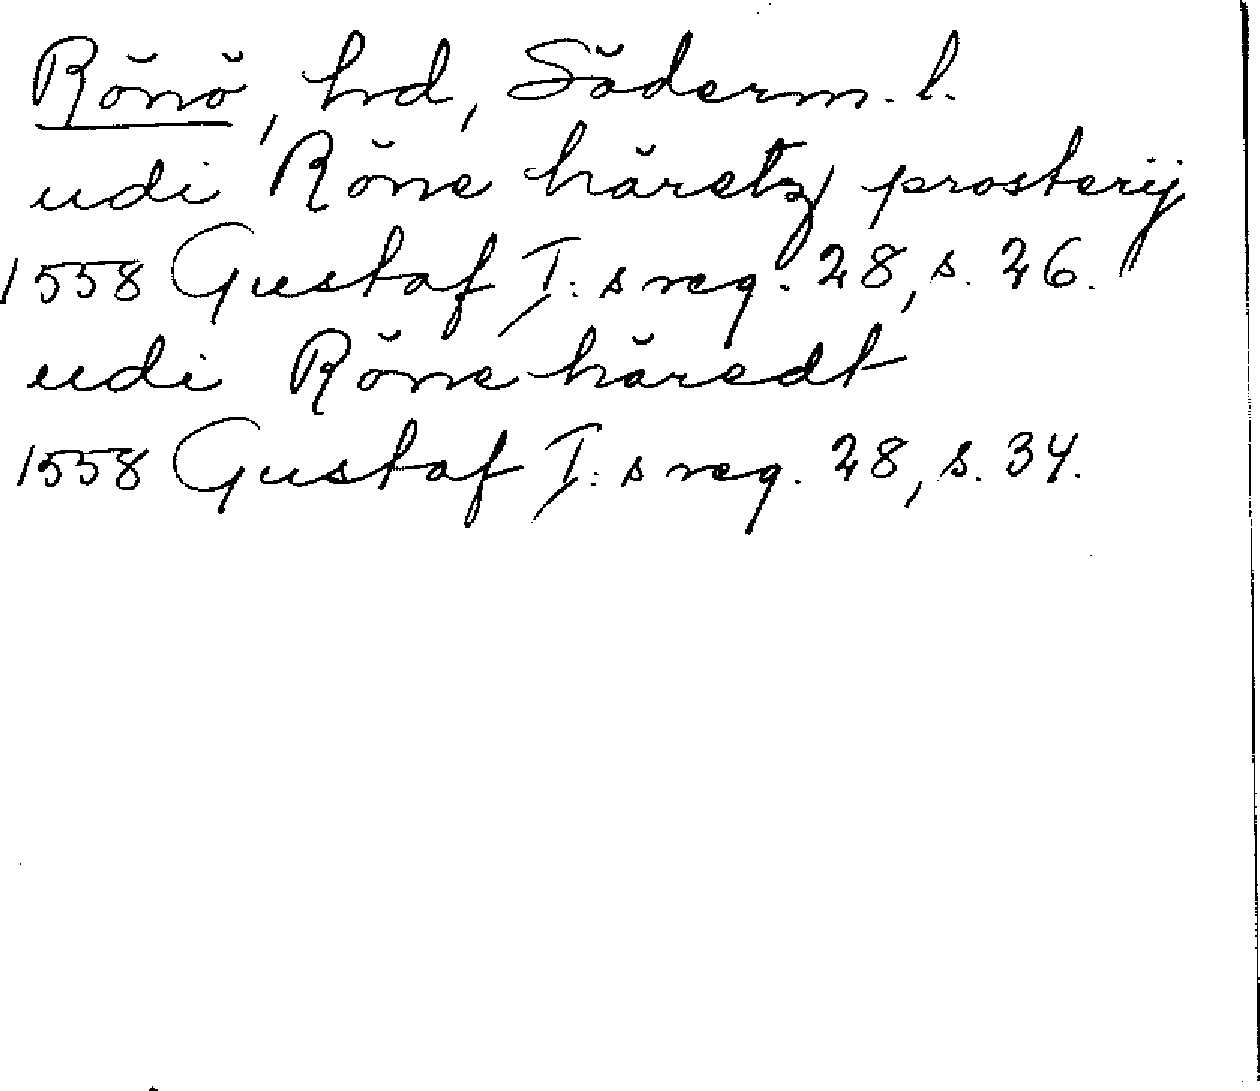 Rönö, hd, Söderm. l.
udi Röne häretz prosterij
1558 Gustaf I:s reg. 28, s. 26.
udi Röne häredt
1558 Gustaf I:s reg. 28, s. 34.